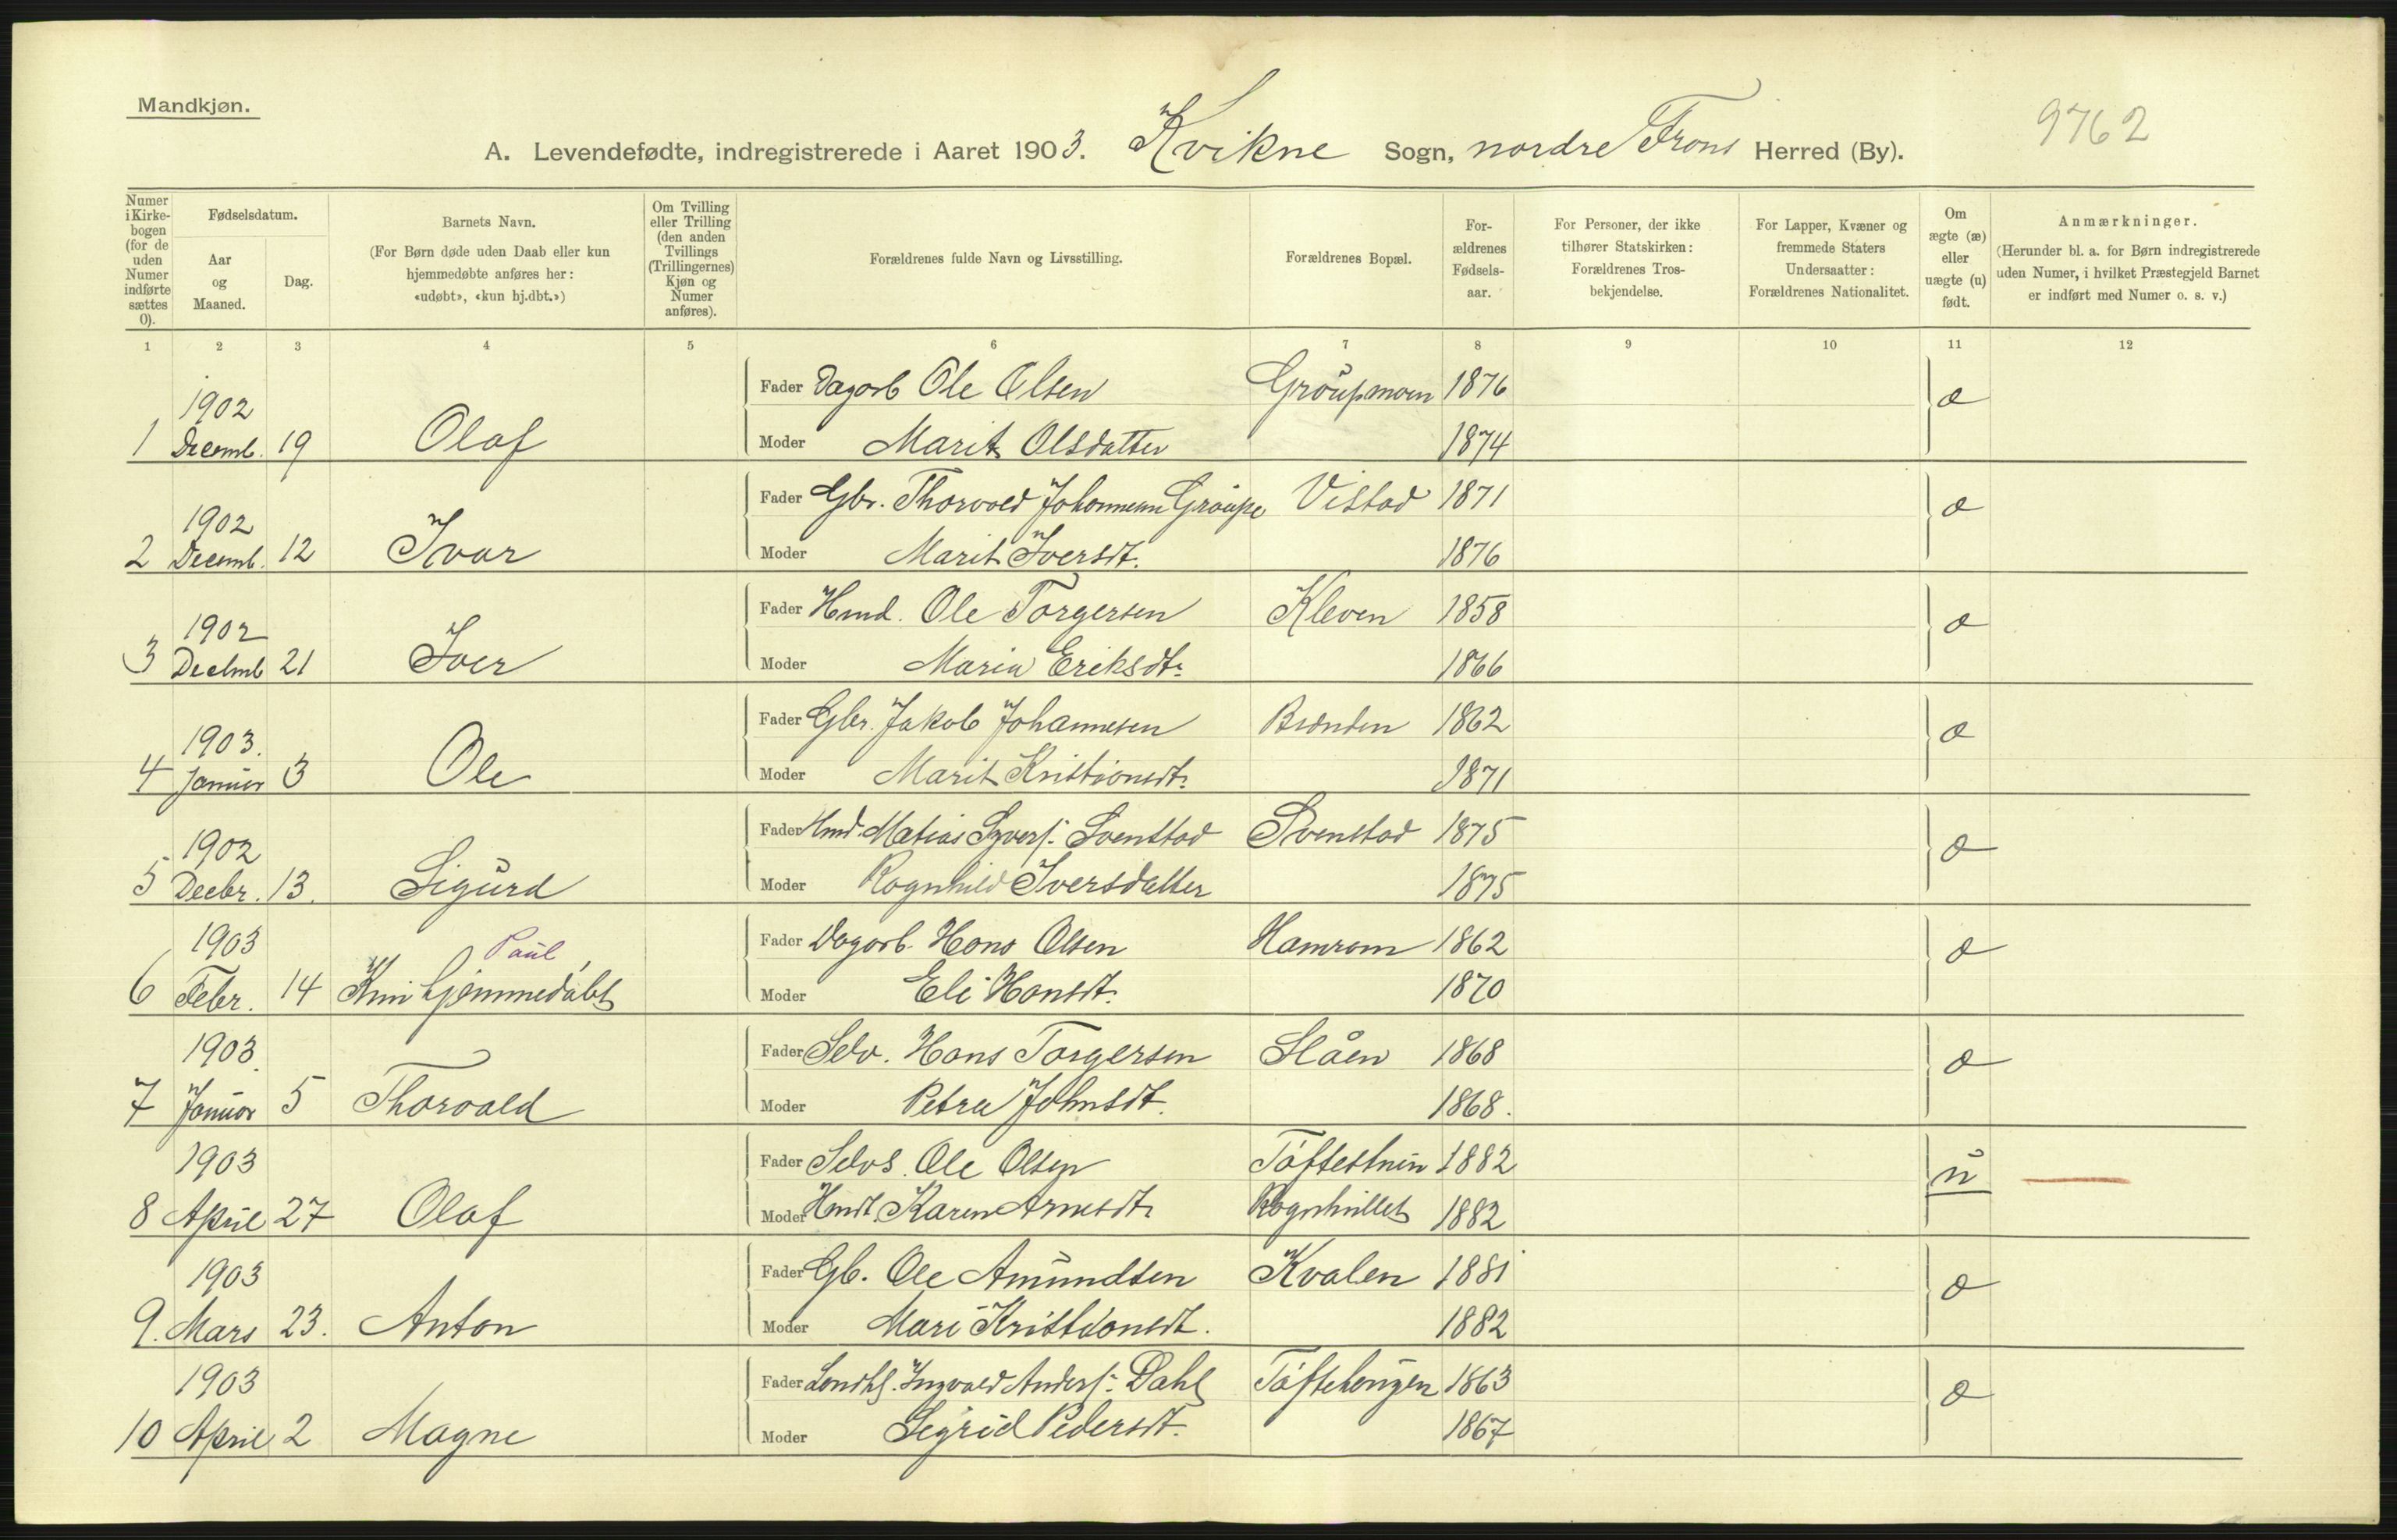 Mandkjøn.
9762
A. Levendefødte, indregistrerede i Aaret 1903. Kvikne Sogn, nordre Frons Herred (By).
Numer i Kirkebogen (for de uden Numer indførte sættes 0).
Fødselsdatum.
Aar og Maaned.
Dag.
Barnets Navn.
(For Børn døde uden Daab eller kun hjemmedøbte anføres her: «udøbt», «kun hj.dbt.»)
Om Tvilling eller Trilling (den anden Tvillings (Trillingernes) Kjøn og Numer anføres).
Forældrenes fulde Navn og Livsstilling.
Forældrenes Bopæl.
For-ældrenes Fødsels-aar.
For Personer, der ikke tilhører Statskirken: Forældrenes Tros-bekjendelse.
For Lapper, Kvæner og fremmede Staters Undersaatter: Forældrenes Nationalitet.
Om ægte (æ) eller uægte (u) født.
Anmærkninger.
(Herunder bl. a. for Børn indregistrerede uden Numer, i hvilket Præstegjeld Barnet er indført med Numer o. s. v.)
1 2 3 4 5 6 7 8 9 10 11 12
1902 Fader Dagarb Ole Olsen Graupmoen 1876 æ
1 Decemb. 19 Olaf Moder Marit Olsdatter 1874
1902 Fader Gbr. Thorvald Johannesen Graupe Vistad 1871 æ
2 Decemb. 12 Ivar Moder Marit Iversdt. 1876
1902 Fader Hmd. Ole Torgersen Kleven 1858 æ
3 Decemb 21 Iver Moder Maria Eriksdt. 1866
1903. Fader Gbr. Jakob Johannesen Brænden 1862 æ
4 Januar 3 Ole Moder Marit Kristiansdt. 1871
1902 Fader Hmd. Matias Syvers. Svenstad Svenstad 1875 æ
5 Decbr. 13. Sigurd Moder Ragnhild Iversdatter 1875
1903 Paul Fader Dagarb. Hans Olsen Hamrom 1862 æ
6 Febr. 14 Kun hjemmedøbt Moder Eli Hansdt. 1870
1903. Fader Selv. Hans Torgersen Slåen 1868 æ
7 Januar 5 Thorvald Moder Petra Johnsdt. 1868.
1903 Fader Selvs. Ole Olsen 1882 u
8 April 27 Olaf Moder Karen Arnesdt. 1882
1903 Fader Gb. Ole Amundsen Kvalen 1881 æ
9. Mars 23. Anton Moder Mari Kristiansdt. 1882
1903 Fader Landh. Ingvald Anders. Dahl Toftehougen 1863 æ
10 April 2 Magne Moder Sigrid Pedersdt. 1867